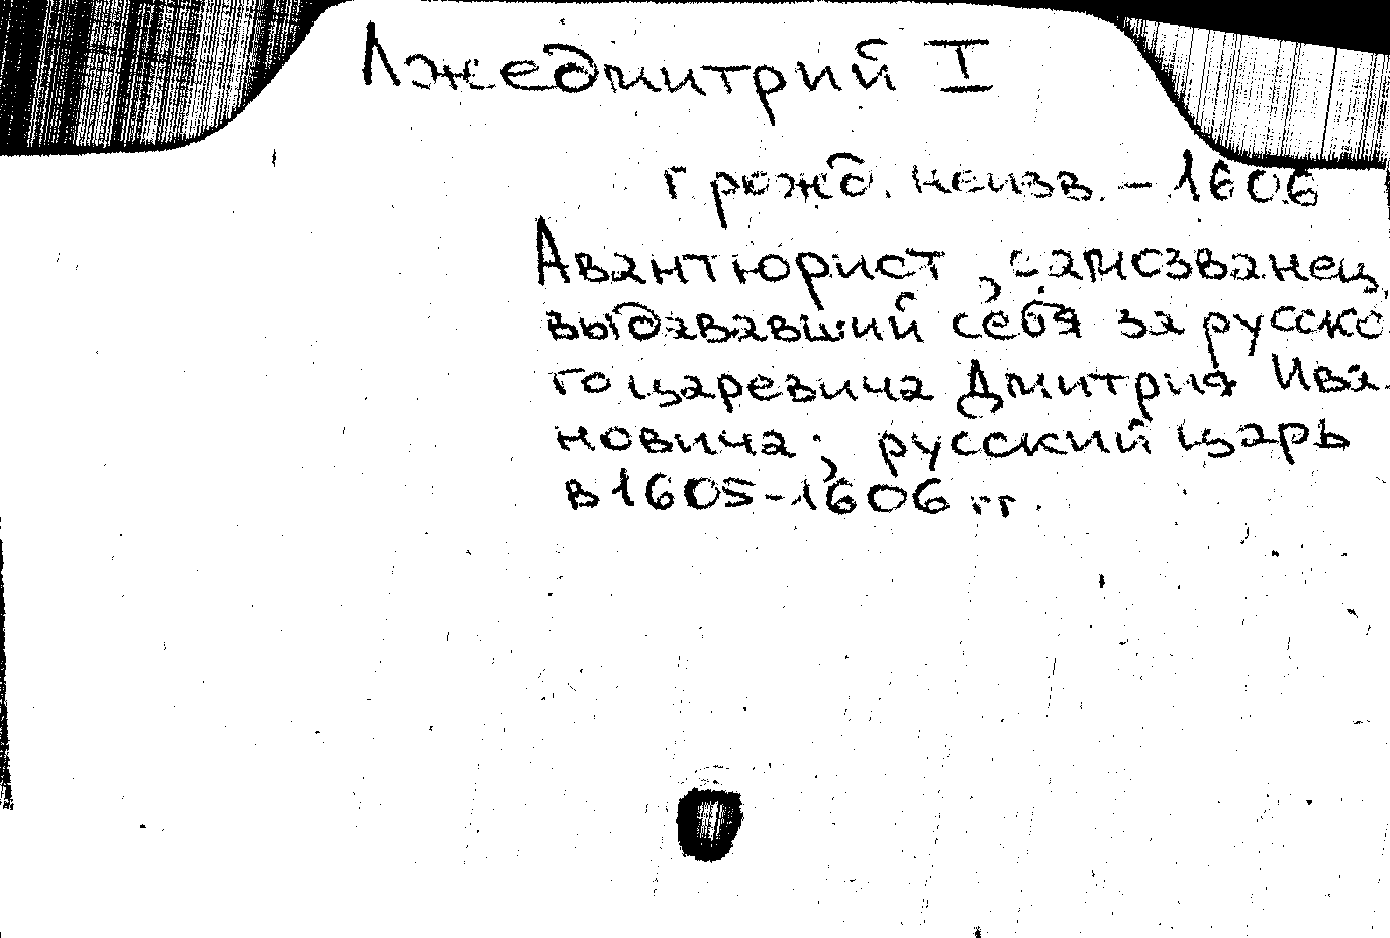 Лжедмитрий I
г. рожд. неизв. – 1606
Авантюрист, самозванец,
выдававший себя за русско
го царевича Дмитрия Ива-
новича; русский царь
в 1605-1606 гг.